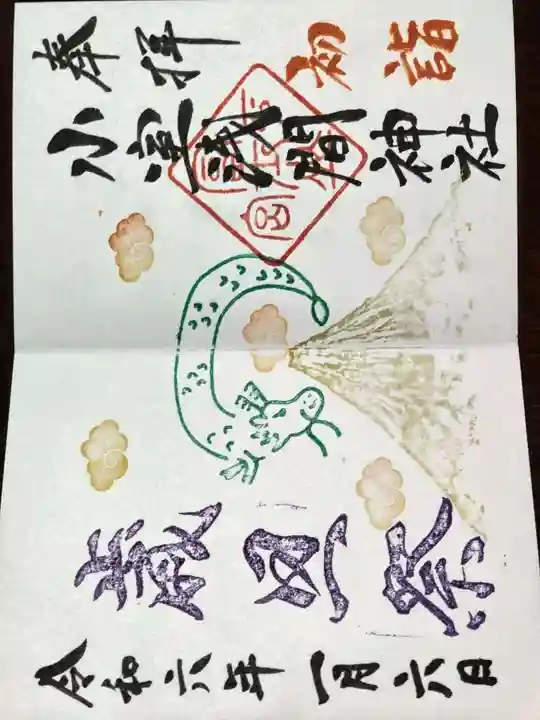 奉拝 初詣
小室浅間神社
歳旦祭
令和六年一月六日